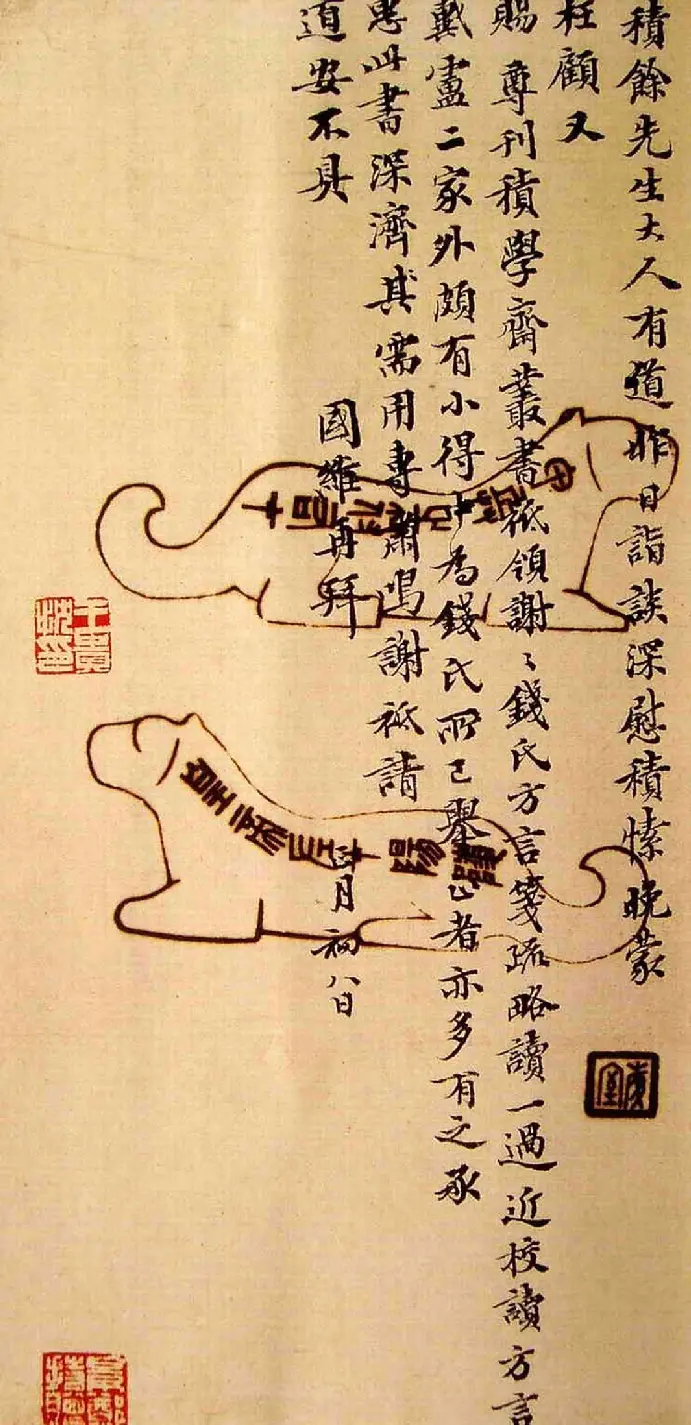 積餘先生大人有道昨日詣談深慰積愫晚蒙
枉顧又
賜尊刊積學齋叢書祗領謝〻錢氏方言箋疏略讀一過近校讀方言
戴盧二家外頗有小得中為錢氏所已舉者亦多有之承
惠此書深濟其需用專肅鳴謝祗請
道安不具
國維再拜
月初八日
王貴忱印